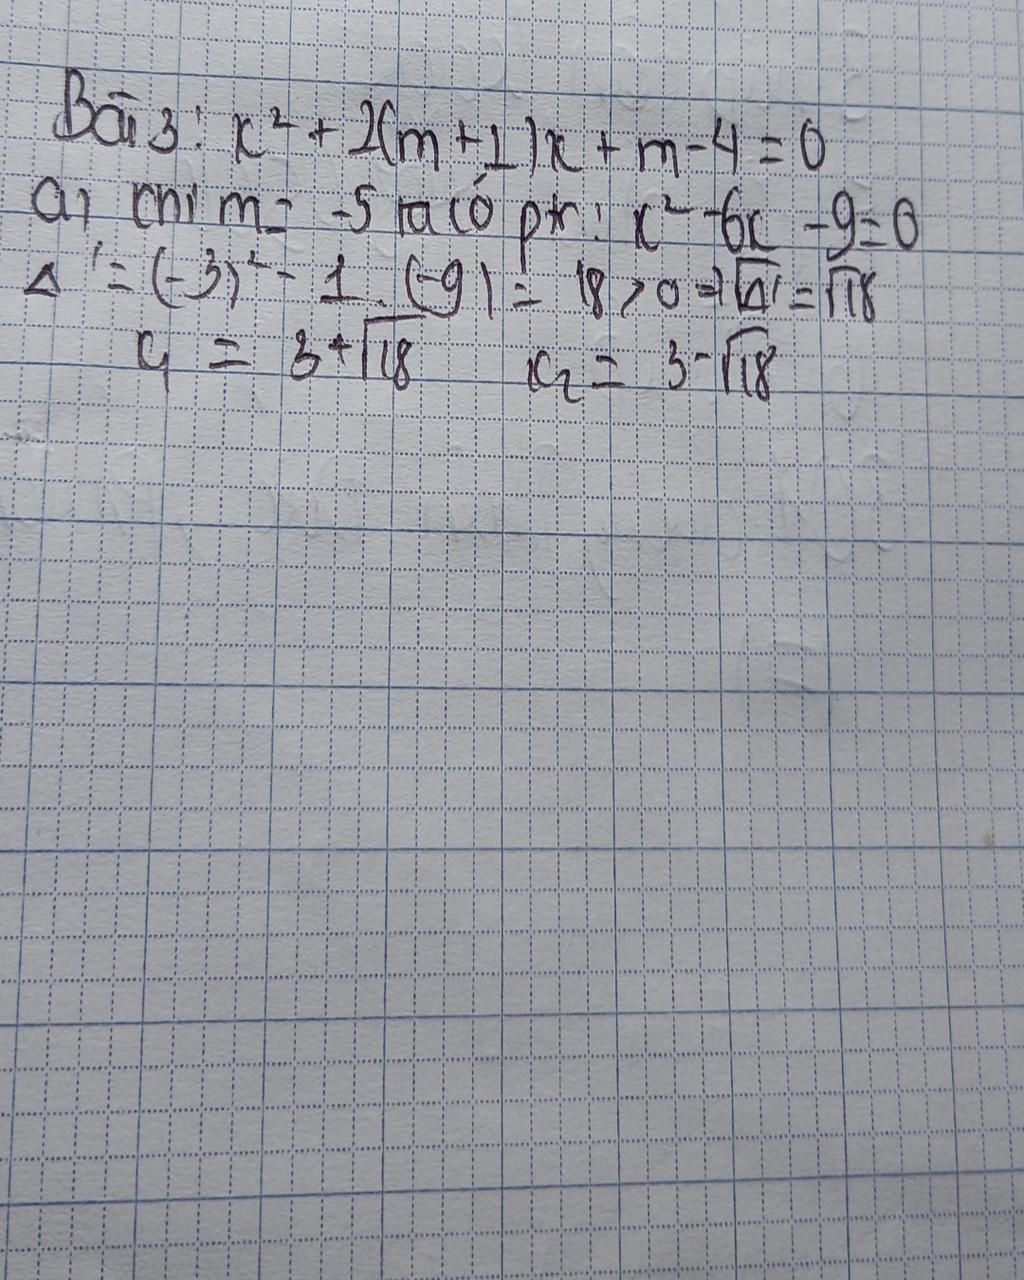 Bài 3: x² + 2(m+1)x + m-4 = 0
a, khi m = -5 ta có ptr: x² - 6x - 9 = 0
Δ' = (-3)² - 1.(-9) = 18 > 0 ⇒ √Δ' = √18
x₁ = 3+√18 x₂ = 3-√18